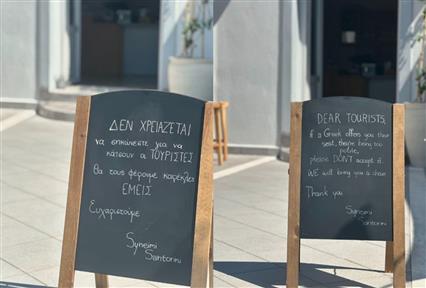 ΔΕΝ ΧΡΕΙΑΖΕΤΑΙ
να σηκώνεστε για να
κάτσουν οι ΤΟΥΡΙΣΤΕΣ
θα τους φέρουμε καρέκλα
ΕΜΕΙΣ
Ευχαριστούμε
Syneimi
Santorini
DEAR TOURISTS,
if a Greek offers you their
seat, they're being too
polite,
please DON'T accept it.
WE will bring you a chair
Thank you
Syneimi
Santorini